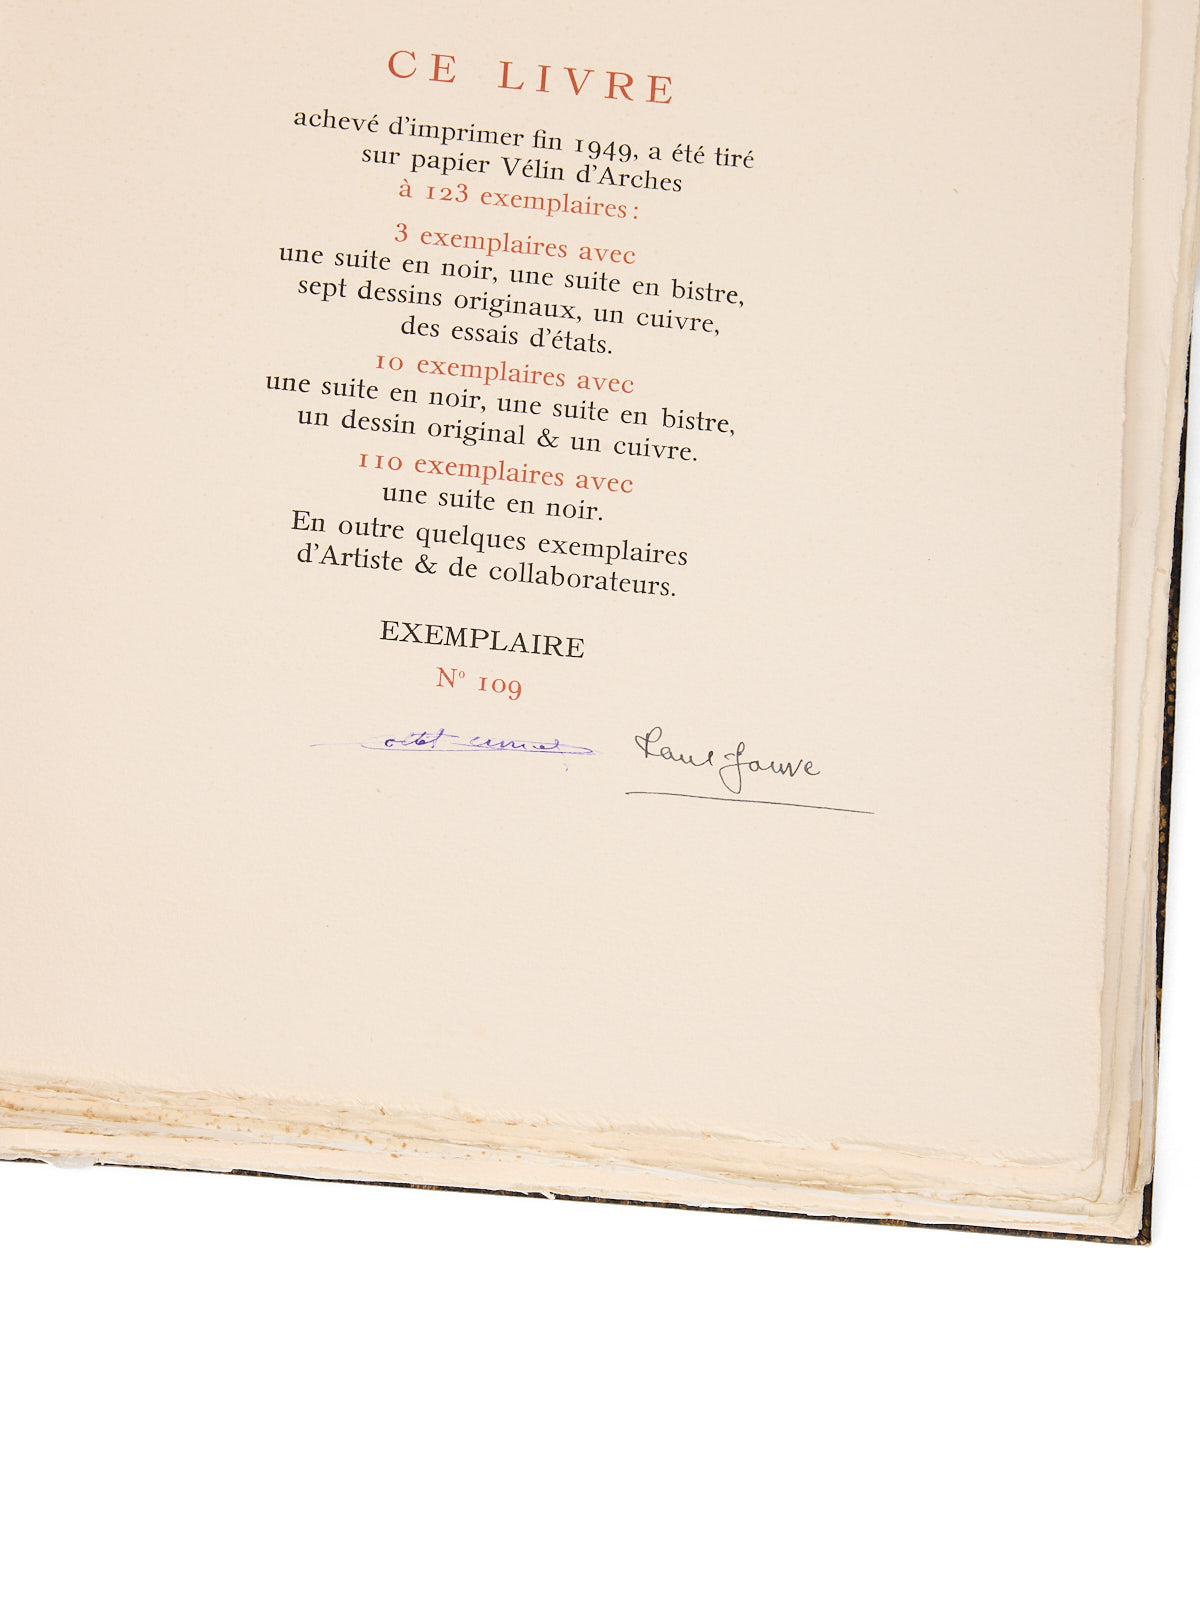 CE LIVRE
achevé d'imprimer fin 1949, a été tiré
sur papier Vélin d'Arches
à 123 exemplaires :
3 exemplaires avec
une suite en noir, une suite en bistre,
sept dessins originaux, un cuivre,
des essais d'états.
10 exemplaires avec
une suite en noir, une suite en bistre,
un dessin original & un cuivre.
110 exemplaires avec
une suite en noir.
En outre quelques exemplaires
d'Artiste & de collaborateurs.
EXEMPLAIRE
Nº 109
Paul Jouve